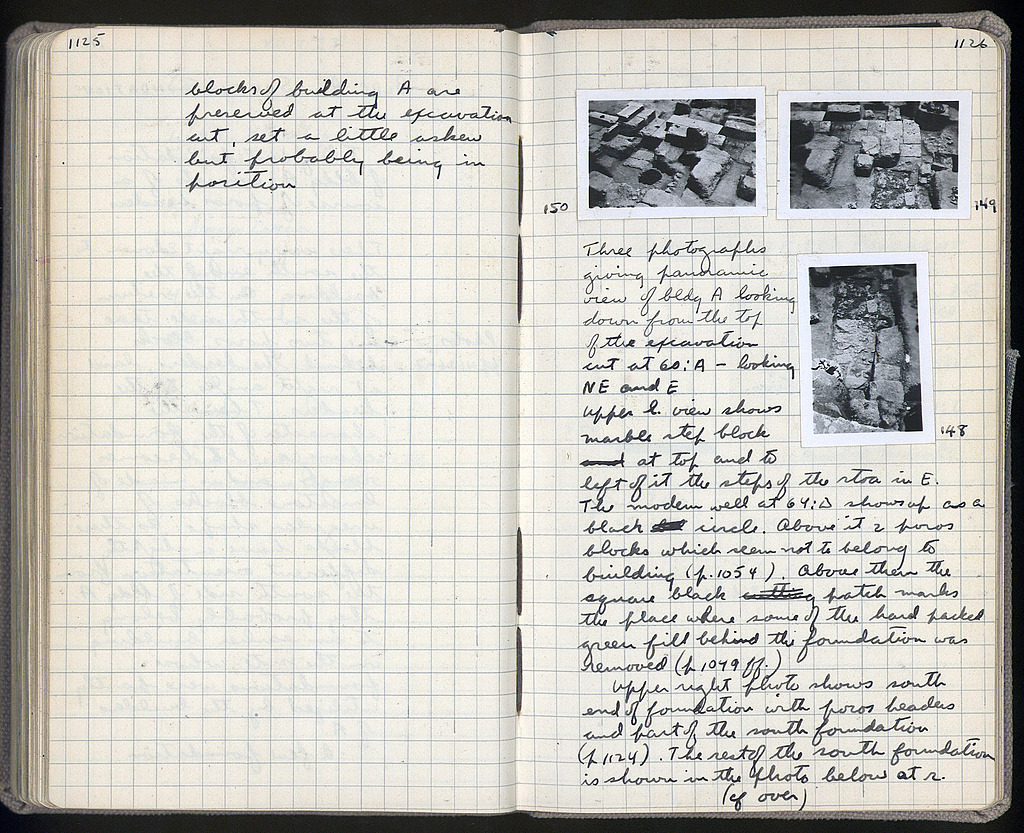 1125
blocks of building A are
preserved at the excavation
cut, set a little askew
but probably being in
position
1126
150
149
Three photographs
giving panoramic
view of bldg A looking
down from the top
of the excavation
cut at 60:A - looking
NE and E
Upper l. view shows
marble step block
and at top and to
left of it the steps of the stoa in E.
The modern well at 64:D shows up as a
black circle. Above it 2 poros
blocks which seem not to belong to
building (p. 1054). Above them the
square black cutting patch marks
the place where some of the hard packed
green fill behind the foundation was
removed (p 1049 ff.)
Upper right photo shows south
end of foundation with poros headers
and part of the south foundation
(p 1124). The rest of the south foundation
is shown in the photo below at r.
(cf over)
148